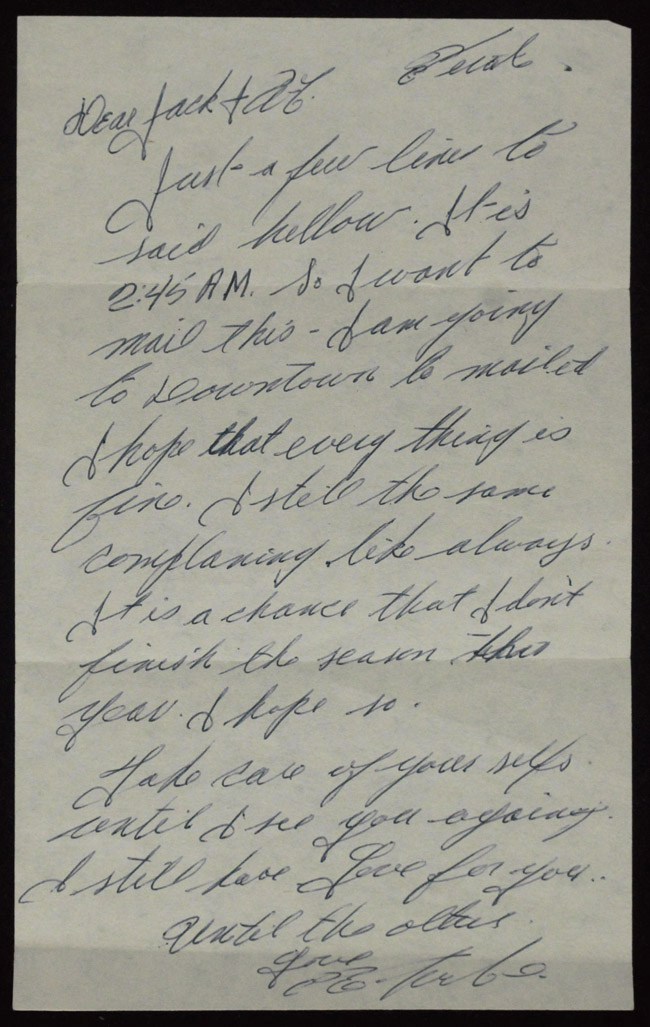 Dear Jack +
Just a few lines to
said hellow. It is
2:45 AM. So I want to
mail this - I am going
to Downtown to mailed
I hope that every thing is
fine. I still the same
complaning like always.
It is a chance that I don't
finish the season this
year. I hope so.
Take care of yours selfs
until I see you again.
I still have Love for you..
Until the other.
Love